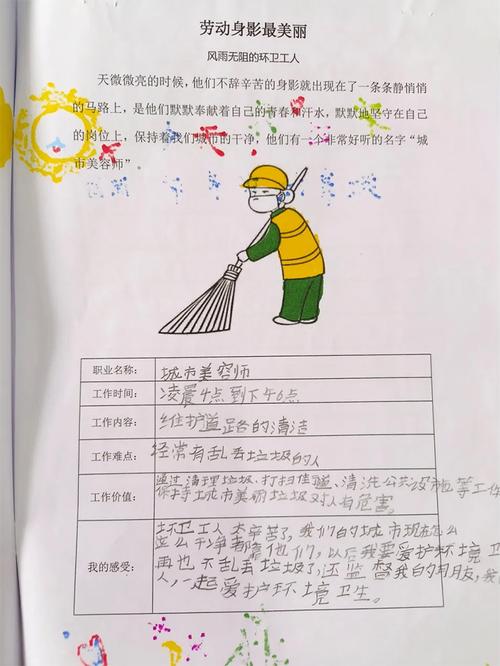 劳动身影最美丽
风雨无阻的环卫工人
天微微亮的时候，他们不辞辛苦的身影就出现在了一条条静悄悄
的马路上，是他们默默奉献着自己的青春和汗水，默默地坚守在自己
的岗位上，保持着我们城市的干净，他们有一个非常好听的名字“城
市美容师”。
职业名称： 城市美容师
工作时间： 凌晨4点到下午6点
工作内容： 维护道路的清洁
工作难点： 经常有乱丢垃圾的人
工作价值： 通过清理垃圾、打扫街道、清洗公共设施等工作
保持城市美丽垃圾对人有危害。
我的感受： 环卫工人太辛苦了，我们的城市现在怎么
这么干净都靠他们，以后我要爱护环境卫
再也不乱丢垃圾了，还监督我的朋友，我
人，一起爱护环境卫生。